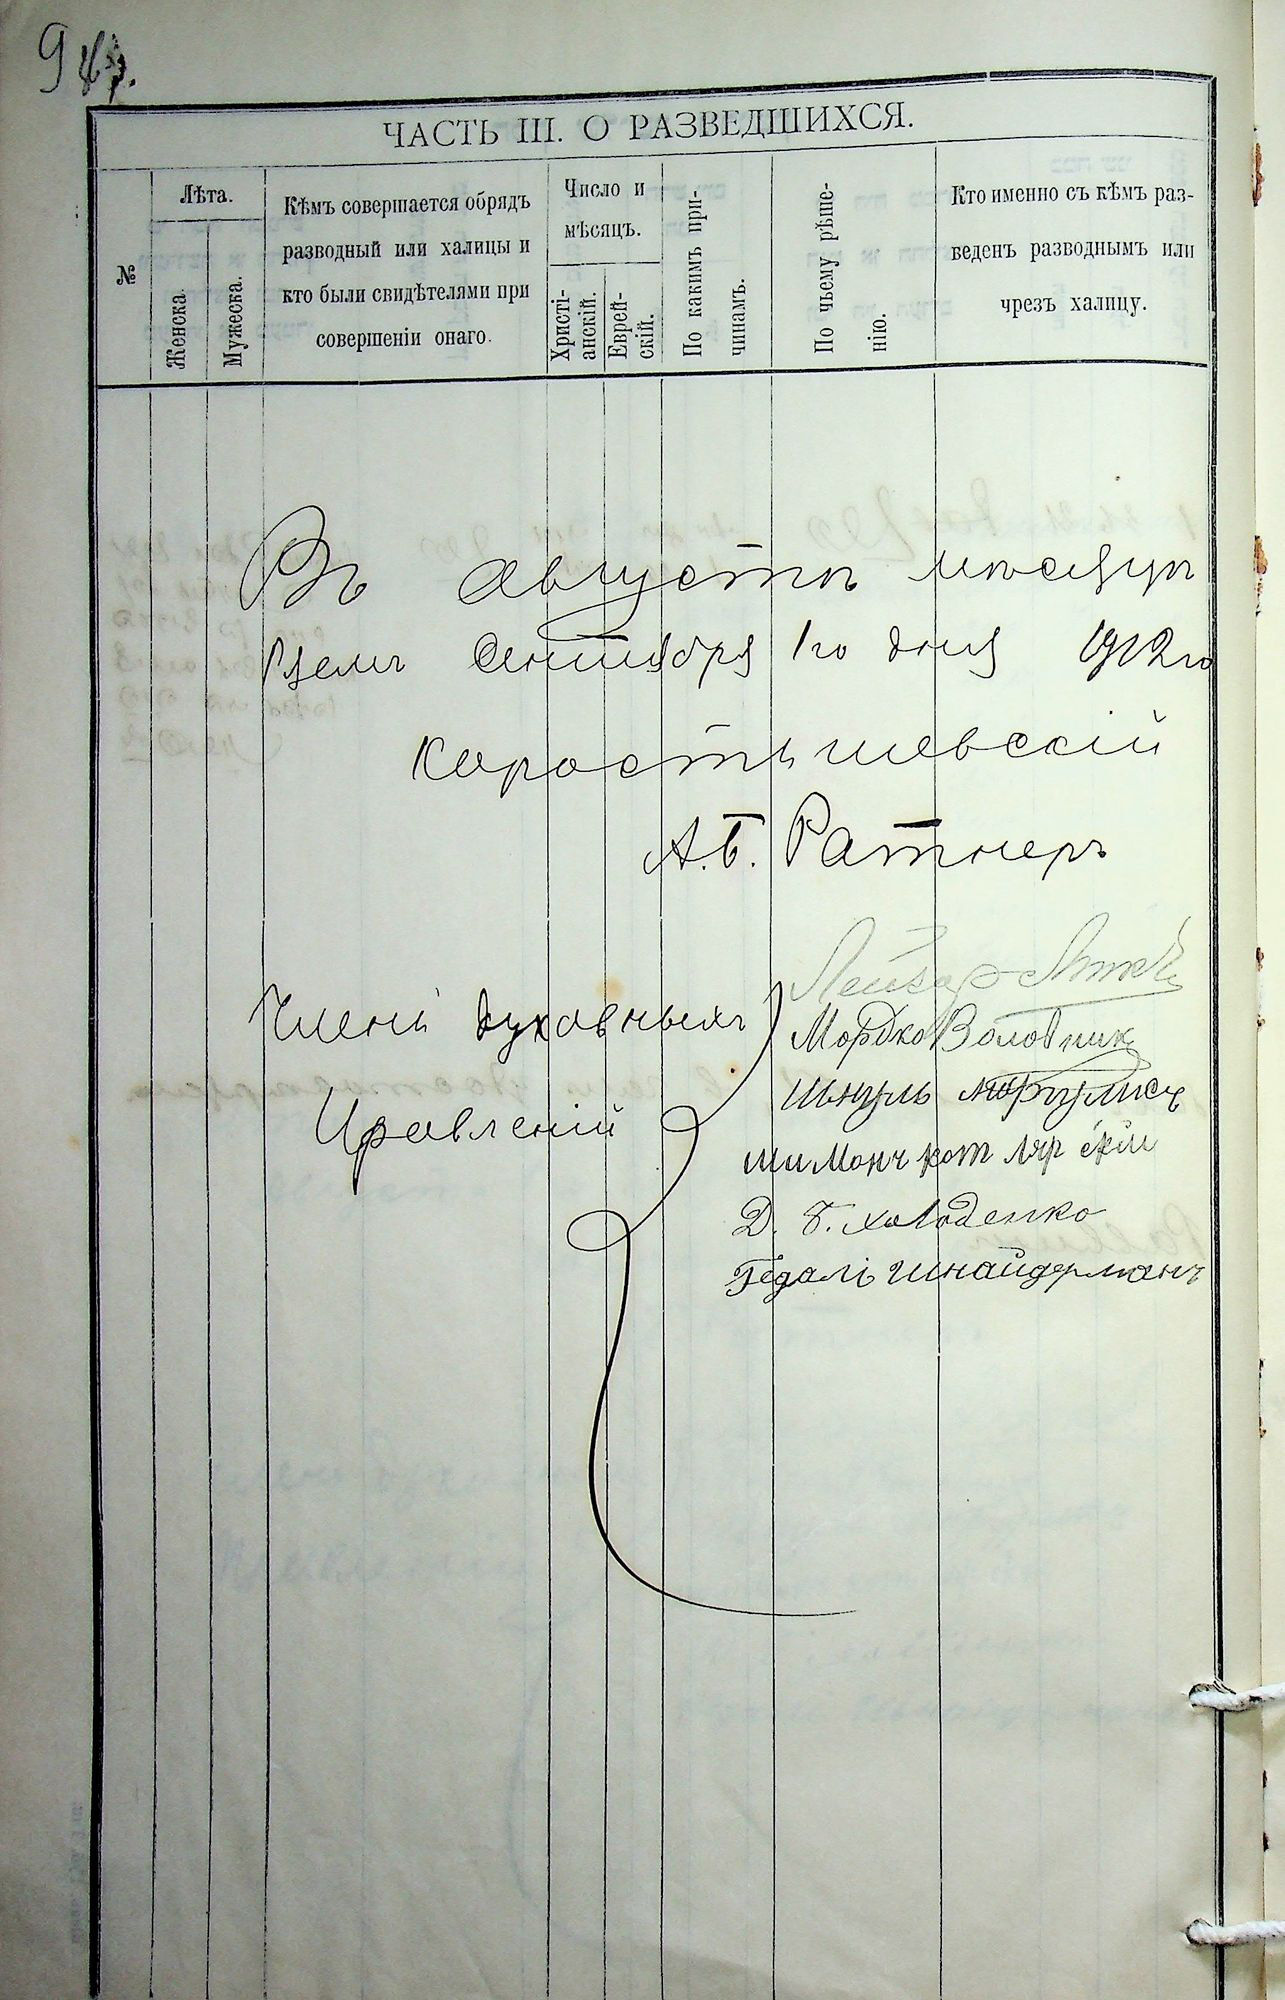 94
ЧАСТЬ III. О РАЗВЕДШИХСЯ.
№
Лѣта.
Женска.
Мужеска.
Кѣмъ совершается обрядъ
разводный или халицы и
кто были свидѣтелями при
совершеніи онаго.
Число и
мѣсяцъ.
Христі-
анскій.
Еврей-
скій.
По какимъ при-
чинамъ.
По чьему рѣше-
нію.
Кто именно съ кѣмъ раз-
веденъ разводнымъ или
чрезъ халицу.
Въ Августѣ мѣсяцѣ
Сентября 1го дня 1912го
Коростышевскій
А.Б. Ратнеръ
Члены духовныхъ
Правленій
Лейзар
Мордко Володник
Шмуль Моргулисъ
Шимонъ Котлярскій
Д. Б. Холоденко
Гедалі Шнайдерманъ